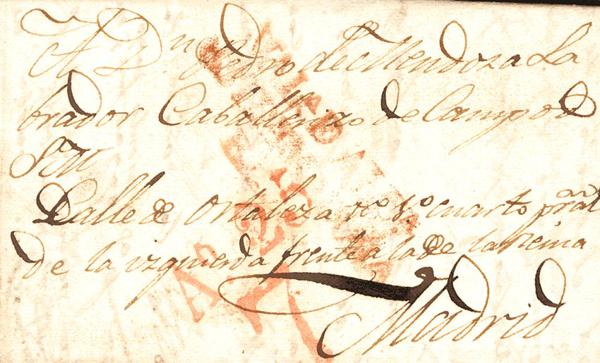 A Dn. Pedro de Mendoza La
brador Caballerizo de Campo d
S M
Calle de Ortaleza no. 8o. cuarto pral
De la izquierda frente a la de la Reina
Madrid